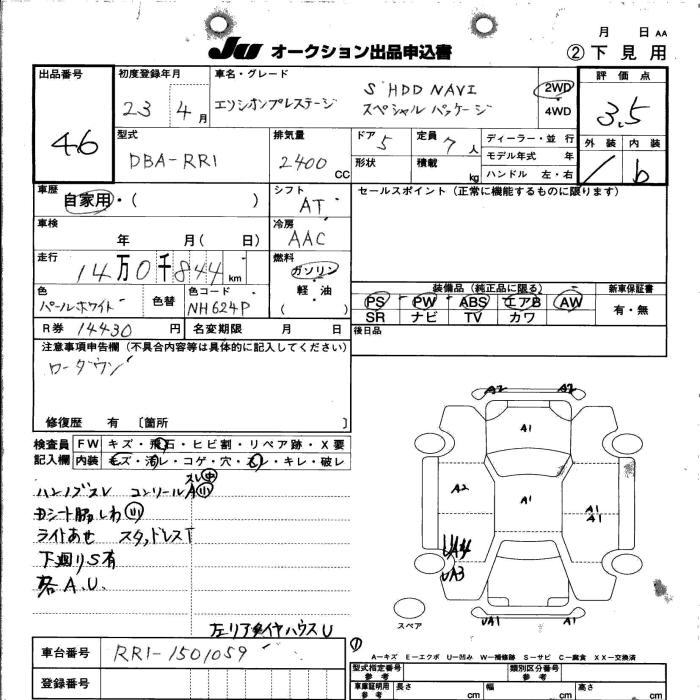 月 日 AA
JU オークション出品申込書 ② 下見用
出品番号 初度登録年月 車名・グレード 評価点
46 23 4月 エリシオンプレステージ S HDD NAVI スペシャルパッケージ 2WD 4WD 3.5
型式 排気量 ドア 5 定員 7人 ディーラー・並行 外装 内装
DBA-RR1 2400 CC 形状 積載 kg モデル年式 年 ハンドル 左・右 b
車歴 自家用・( ) シフト AT セールスポイント(正常に機能するものに限ります)
車検 年 月( 日) 冷房 AAC
走行 14万0千844 km 燃料 ガソリン 軽・油 ( )
色 パールホワイト 色替 色コード NH624P
装備品(純正品に限る) 新車保証書
PS PW ABS エアB AW 有・無
SR ナビ TV カワ
R券 14430 円 名変期限 月 日 後日品
注意事項申告欄(不具合内容等は具体的に記入してください)
ローダウン
修復歴 有 〔箇所 〕
検査員 FW キズ・飛石・ヒビ割・リペア跡・X要
記入欄 内装 キズ・汚レ・コゲ・穴・スレ・キレ・破レ
スレ中
ハンドルスレ コンソールA小
Dシート脇しわ小
ライトあせ スタッドレスT
下廻りS有
各A.U.
左リアタイヤハウスU
A2 A2
A1
A2 A1 A1 A1
UA4
UA3
UA1 A1
スペア
A-キズ E-エクボ U-凹み W-補修跡 S-サビ C-腐食 XX-交換済
車台番号 RR1-1501059
登録番号
型式指定番号 参考 類別区分番号 参考
車庫証明用 参考 長さ cm 幅 cm 高さ cm